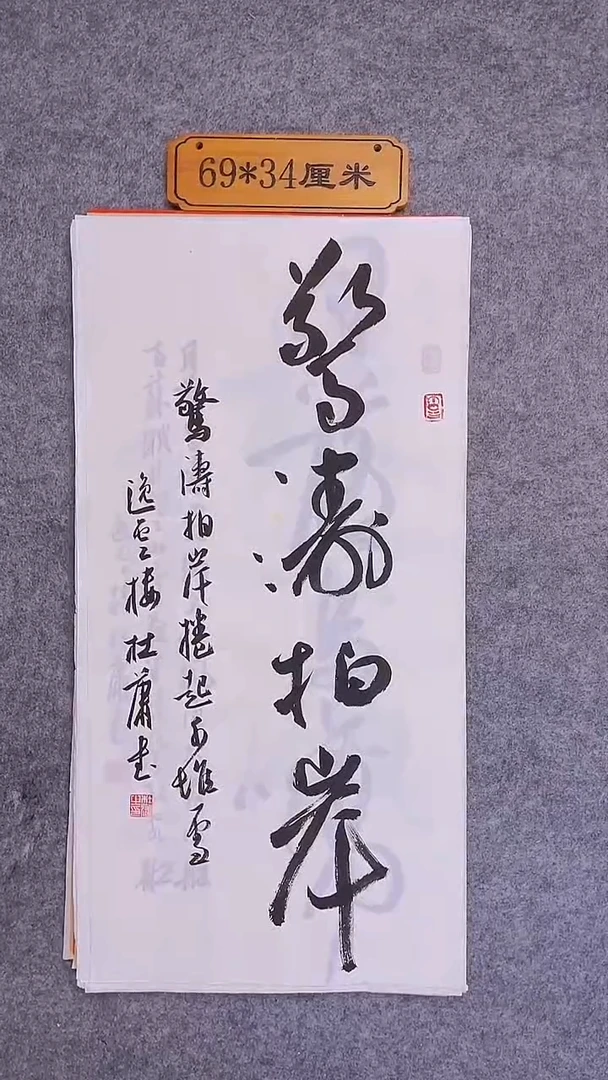 69*34厘米
驚濤拍岸
驚濤拍岸捲起千堆雪
逸雲樓杜蕭書